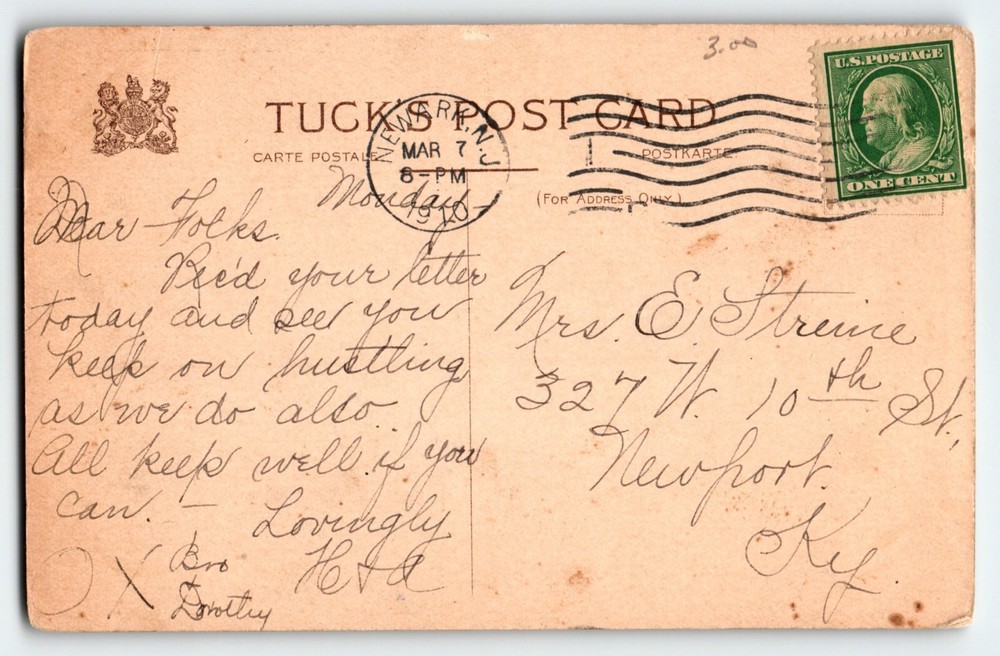 3.00
U.S. POSTAGE
ONE CENT
TUCK'S POST CARD
CARTE POSTALE
POSTKARTE
(FOR ADDRESS ONLY.)
NEWARK, N.J.
MAR 7
8-PM
1910
Monday -
Dear Folks.
Rec'd your letter
today and see you
keep on hustling
as we do also.
All keep well if you
can. -
Lovingly
H & A
O X Bro
Dorothy
Mrs. E. Streine
327 W. 10th St.,
Newport.
Ky.